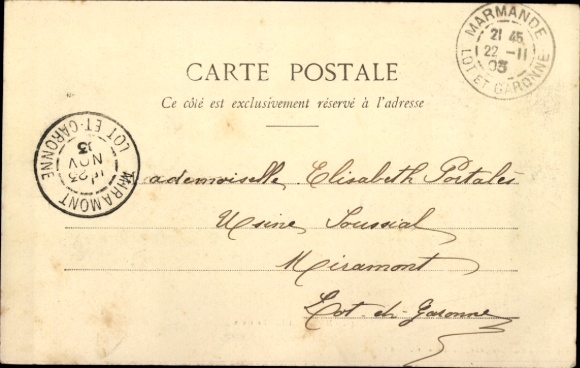 MARMANDE
21 45
22 - 11
03
LOT ET GARONNE
CARTE POSTALE
Ce côté est exclusivement réservé à l'adresse
MIRAMONT
23
NOV
03
LOT-ET-GARONNE
Mademoiselle Elisabeth Portalès
Usine Soussial
Miramont
Lot-et-Garonne